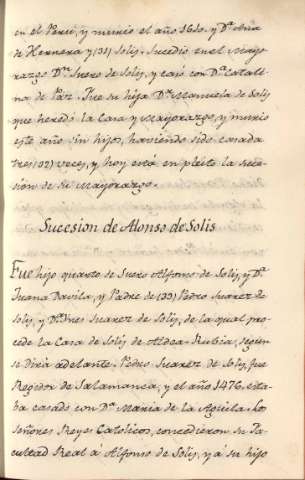 en el Perú, y murio el año 1610. y Dª Ana
de Herrera y (31) Solis. Sucedio en el Mayo-
razgo Dn. Suero de Solis, y casó con Dª Catali-
na de Paz. Fue su hija Dª Manuela de Solis
que heredó la Casa y Mayorazgo, y murio
este año sin hijos, haviendo sido casada
tres (32) veces, y hoy está en pleito la suce-
sion de su Mayorazgo.
Sucesion de Alonso de Solis
Fue hijo quarto de Suero Alfonso de Solis, y Dª
Juana Davila, y Padre de (33) Pedro Suarez de
Solis, y Dª Ines Suarez de Solis, de la qual pro-
cede la Casa de Solis de Aldea-Rubia, segun
se dirá adelante. Pedro Suarez de Solis, fue
Regidor de Salamanca, y el año 1476. esta-
ba casado con Dª Maria de la Aguila. Los
Señores Reyes Catolicos, concedieron su Fa-
cultad Real á Alfonso de Solis, y á su hijo